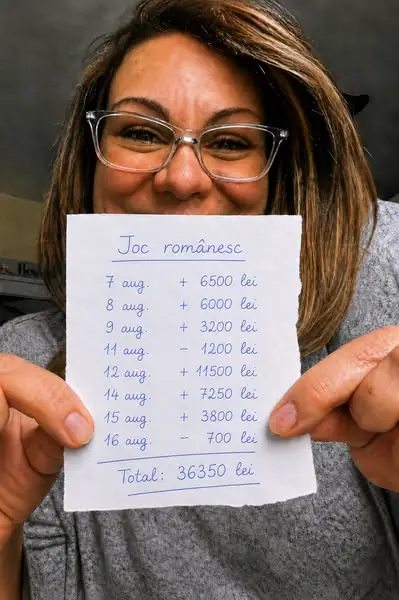 Joc românesc
7 aug. + 6500 lei
8 aug. + 6000 lei
9 aug. + 3200 lei
11 aug. - 1200 lei
12 aug. + 11500 lei
14 aug. + 7250 lei
15 aug. + 3800 lei
16 aug. - 700 lei
Total: 36350 lei